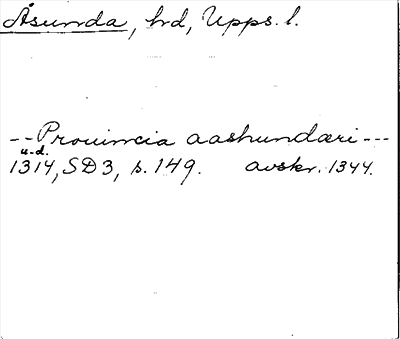 Åsunda, hd, Upps. l.
-- Prouincia aashundæri ---
u.d.
1314, SD3, s. 149. avskr. 1344.